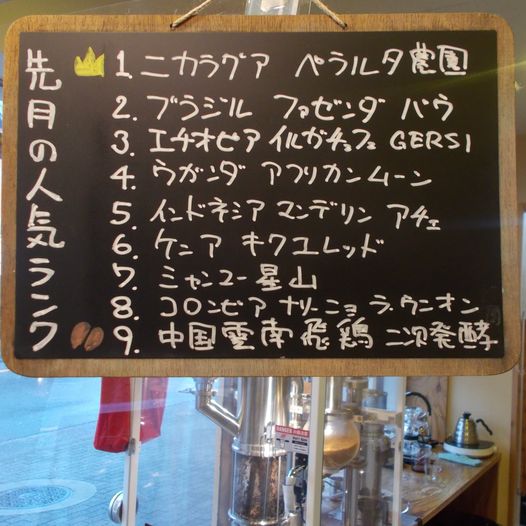 先月の人気ランク
1. ニカラグア ペラルタ農園
2. ブラジル ファゼンダ バウ
3. エチオピア イルガチェフェ GERSI
4. ウガンダ アフリカンムーン
5. インドネシア マンデリン アチェ
6. ケニア キクユレッド
7. ミャンマー 星山
8. コロンビア ナリーニョ ラ・ウニオン
9. 中国雲南 飛鶏 二次発酵
DANGER